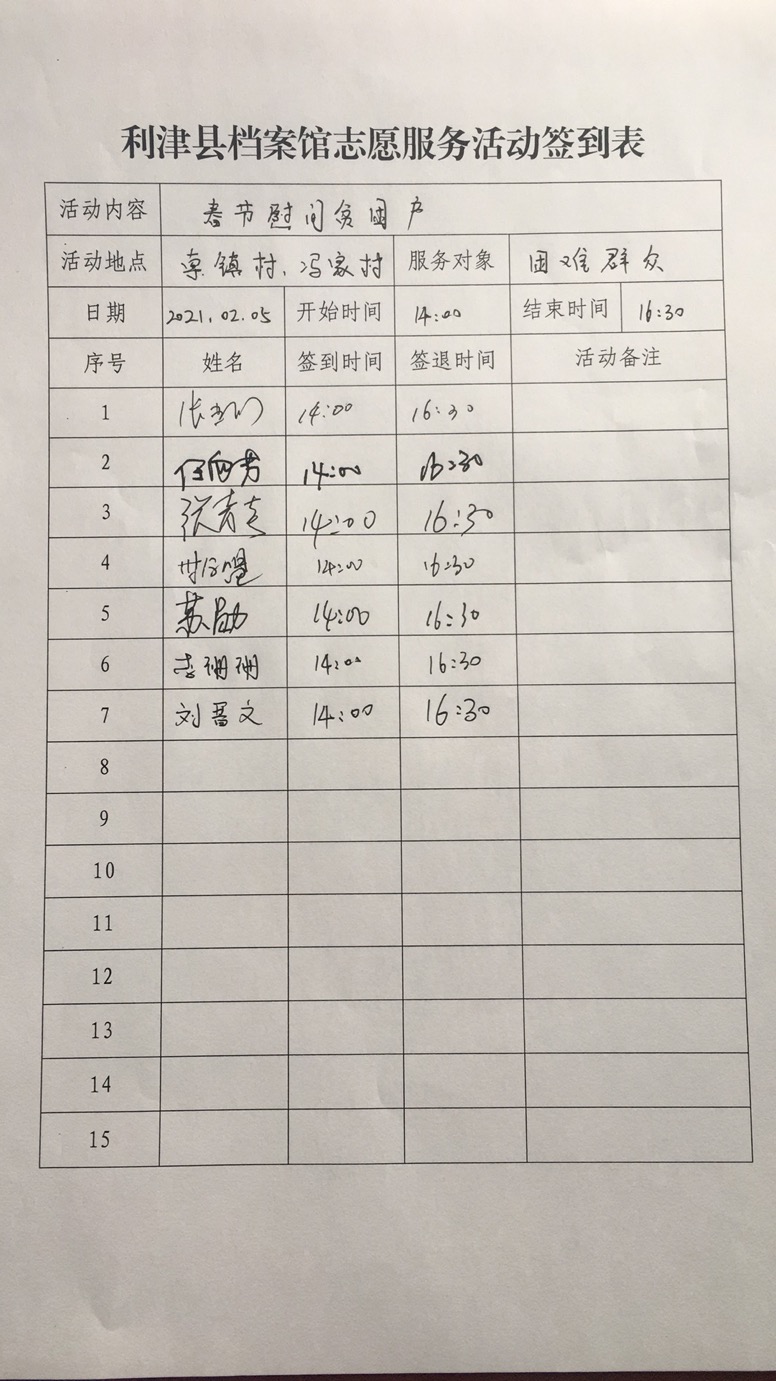 利津县档案馆志愿服务活动签到表
活动内容 春节慰问贫困户
活动地点 镇村、冯家村 服务对象 困难群众
日期 2021.02.05 开始时间 14:00 结束时间 16:30
序号 姓名 签到时间 签退时间 活动备注
1 14:00 16:30
2 14:00 16:30
3 14:00 16:30
4 14:00 16:30
5 苏勋 14:00 16:30
6 珊珊 14:00 16:30
7 刘晋文 14:00 16:30
8
9
10
11
12
13
14
15